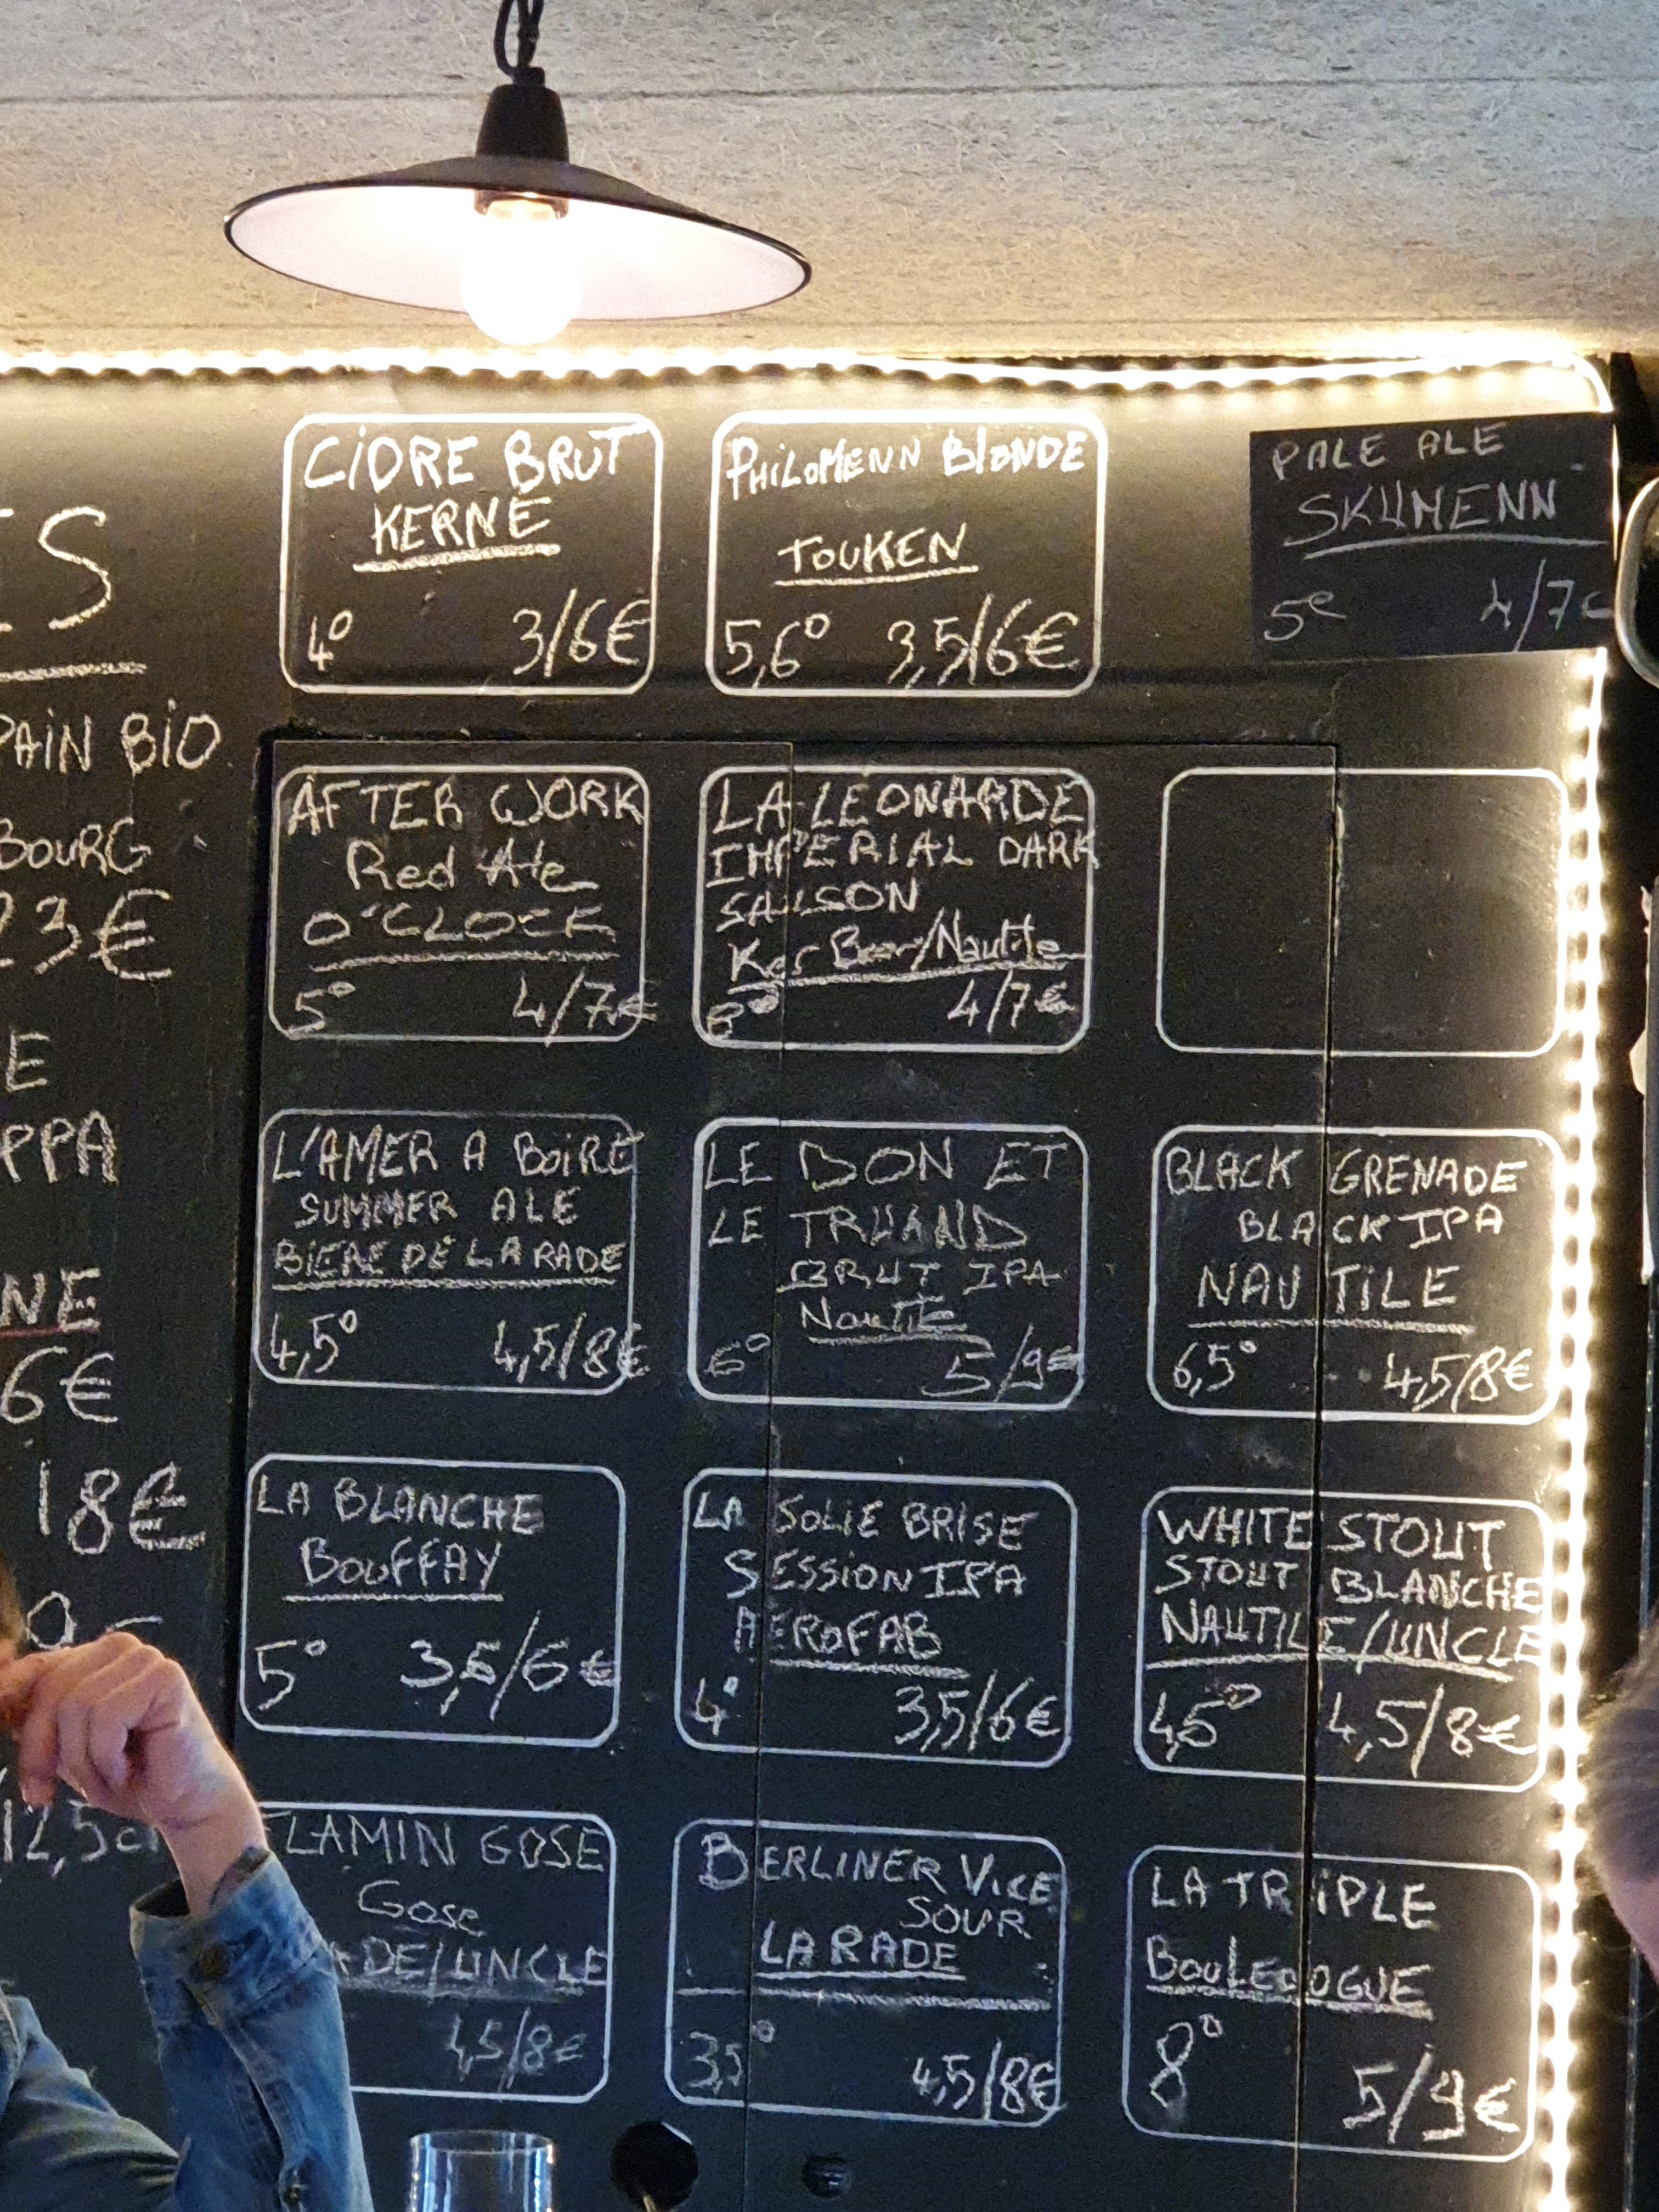 ES
PAIN BIO
BOURG
23€
E
PPA
NE
6€
18€
12,5c
CIDRE BRUT
KERNE
4° 3/6€
PHILOMENN BLONDE
TOUKEN
5,6° 3,5/6€
PALE ALE
SKUMENN
5° 4/7€
AFTER WORK
Red Ale
O'CLOCK
5° 4/7€
LA LEONARDE
IMPERIAL DARK
SAISON
Ker Beer/Nautile
8° 4/7€
L'AMER A BOIRE
SUMMER ALE
BIERE DE LA RADE
4,5° 4,5/8€
LE BON ET
LE TRUAND
BRUT IPA
Nautile
6° 5/9€
BLACK GRENADE
BLACK IPA
NAUTILE
6,5° 4,5/8€
LA BLANCHE
BOUFFAY
5° 3,5/6€
LA SOLIE BRISE
SESSION IPA
AEROFAB
4° 3,5/6€
WHITE STOUT
STOUT BLANCHE
NAUTILE/UNCLE
4,5° 4,5/8€
LAMIN GOSE
Gose
ADE/UNCLE
4,5/8€
BERLINER VICE
SOUR
LA RADE
3,5° 4,5/8€
LA TRIPLE
BOULEDOGUE
8° 5/9€